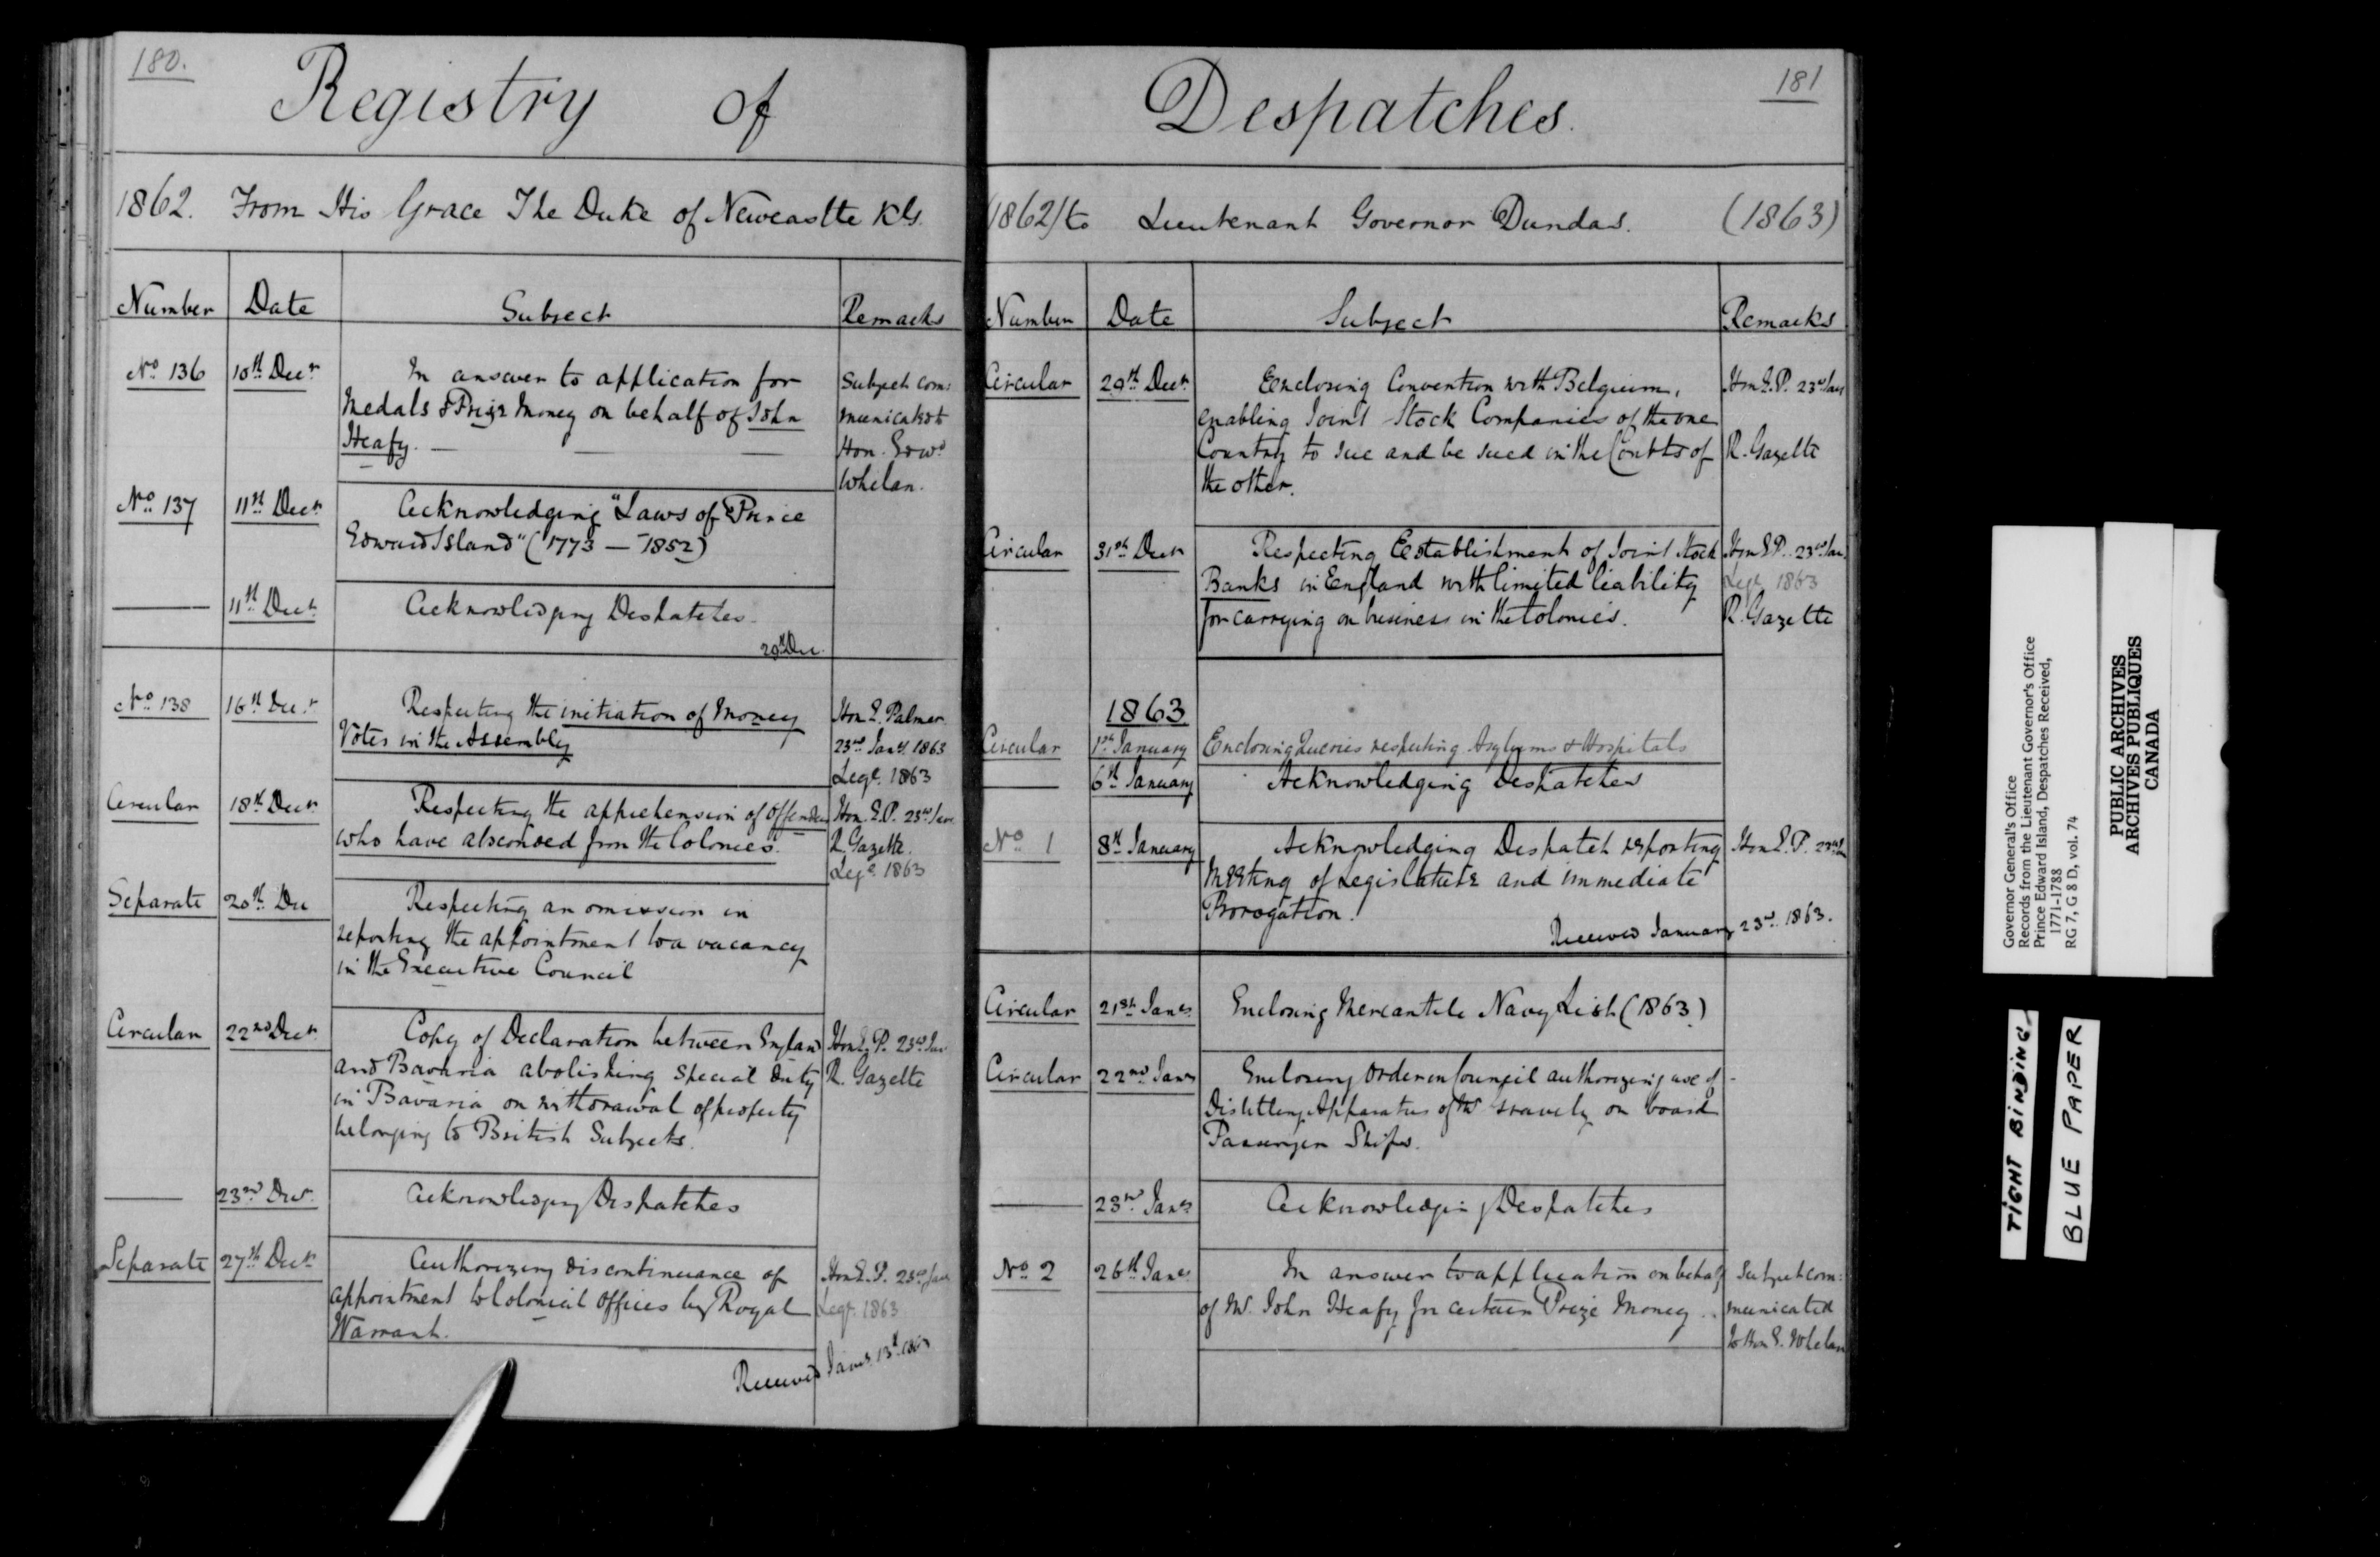 180.
Registry of
1862. From His Grace The Duke of Newcastle K.G.
Number Date Subject Remarks
No. 136 10th Decr In answer to application for
Medals & Prize Money on behalf of John
Heafy. —
Subject com:
municated to
Hon. Edwd
Whelan.
No. 137 11th Decr Acknowledging "Laws of Prince
Edward Island" (1773 — 1852)
— 11th Decr Acknowledging Despatches
29th Dec.
No. 138 16th Decr Respecting the initiation of Money
Votes in the Assembly
Hon E. Palmer
23rd Jany 1863
Lege. 1863
Circular 18th Decr Respecting the apprehension of Offenders
who have absconded from the Colonies.
Hon. E.P. 23rd Jan
R. Gazette.
Lege. 1863
Separate 20th Dec Respecting an omission in
reporting the appointment to a vacancy
in the Executive Council
Circular 22nd Decr Copy of Declaration between England
and Bavaria abolishing special duty
in Bavaria on withdrawal of property
belonging to British Subjects.
Hon E. P. 23rd Jan
R. Gazette
— 23rd Decr Acknowledging Despatches
Separate 27th Decr Authorizing discontinuance of
appointment to Colonial Offices by Royal
Warrant.
Hon E. P. 23rd Jan
Lege. 1863
Received Jany. 13th 1863
181
Despatches.
(1862) to Lieutenant Governor Dundas. (1863)
Number Date Subject Remarks
Circular 29th Decr Enclosing Convention with Belgium,
enabling Joint Stock Companies of the one
Country to sue and be sued in the Courts of
the other.
Hon E. P. 23rd Jany
R. Gazette
Circular 31st Decr Respecting Establishment of Joint Stock
Banks in England with limited liability
for carrying on business in the Colonies.
Hon E.P. 23rd Jan
Lege 1863
R. Gazette
1863
Circular 1st January Enclosing Queries respecting Asylums & Hospitals
— 6th January Acknowledging Despatches
No. 1 8th January Acknowledging Despatch reporting
Meeting of Legislature and immediate
Prorogation.
Hon E. P. 23rd Jan
Received January 23rd. 1863.
Circular 21st Jany Enclosing Mercantile Navy List (1863)
Circular 22nd Jany Enclosing Order in Council authorizing use of
Distilling Apparatus of Mr Gravely on board
Passenger Ships.
— 23rd Jany Acknowledging Despatches
No. 2 26th Jany In answer to application on behalf
of Mr. John Heafy for certain Prize Money.
Subject com:
municated
to Hon E. Whelan
Governor General's Office
Records from the Lieutenant Governor's Office
Prince Edward Island, Despatches Received,
1771-1788
RG 7, G 8 D, vol. 74
PUBLIC ARCHIVES
ARCHIVES PUBLIQUES
CANADA
TIGHT BINDING
BLUE PAPER